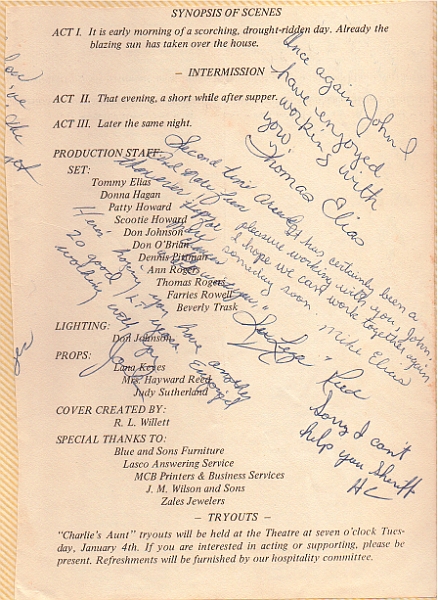 SYNOPSIS OF SCENES
ACT I. It is early morning of a scorching, drought-ridden day. Already the
blazing sun has taken over the house.
– INTERMISSION
ACT II. That evening, a short while after supper.
ACT III. Later the same night.
PRODUCTION STAFF:
SET:
Tommy Elias
Donna Hagan
Patty Howard
Scootie Howard
Don Johnson
Don O'Brian
Dennis Pittman
Ann Roger
Thomas Rogers
Farries Rowell
Beverly Trask
LIGHTING:
Don Johnson
PROPS:
Lana Keyes
Mrs. Hayward Reed
Judy Sutherland
COVER CREATED BY:
R. L. Willett
SPECIAL THANKS TO:
Blue and Sons Furniture
Lasco Answering Service
MCB Printers & Business Services
J. M. Wilson and Sons
Zales Jewelers
– TRYOUTS –
"Charlie's Aunt" tryouts will be held at the Theatre at seven o'clock Tues-
day, January 4th. If you are interested in acting or supporting, please be
present. Refreshments will be furnished by our hospitality committee.
Once again John I
have enjoyed
working with
you,
Thomas Elias
It has certainly been a
pleasure working with you, John,
I hope we can work together again
someday soon. Mike Elias
Second time around
and more fun
than ever
Reed
Sorry I can't
help you Sheriff
HC